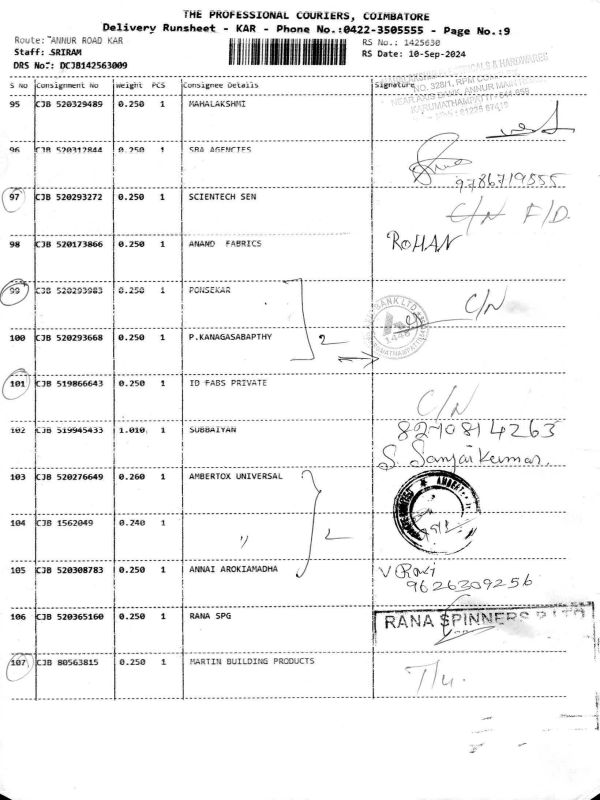 THE PROFESSIONAL COURIERS, COIMBATORE
Delivery Runsheet - KAR - Phone No.:0422-3505555 - Page No.:9
Route: ANNUR ROAD KAR
RS No.: 1425630
Staff: SRIRAM
RS Date: 10-Sep-2024
DRS No.: DCJB142563009
S No Consignment No Weight PCS Consignee Details Signature
NO. 328/1, RPM
NEAR AXIS BANK, ANNUR MAIN
KARUMATHAMPATTI
95 CJB 520329489 0.250 1 MAHALAKSHMI
96 CJB 520312844 0.250 1 SBA AGENCIES
9786719555
97 CJB 520293272 0.250 1 SCIENTECH SEN C/N F/D.
98 CJB 520173866 0.250 1 ANAND FABRICS ROHAN
99 CJB 520293983 0.250 1 PONSEKAR C/N
BANK LTD
100 CJB 520293668 0.250 1 P.KANAGASABAPTHY 2
101 CJB 519866643 0.250 1 ID FABS PRIVATE C/N
102 CJB 519945433 1.010 1 SUBBAIYAN 8270814263
S. Sanjai Kumar.
103 CJB 520276649 0.260 1 AMBERTOX UNIVERSAL
104 CJB 1562049 0.240 1 " 2
105 CJB 520308783 0.250 1 ANNAI AROKIAMADHA V Ravi
9626309256
106 CJB 520365160 0.250 1 RANA SPG RANA SPINNERS
107 CJB 80563815 0.250 1 MARTIN BUILDING PRODUCTS